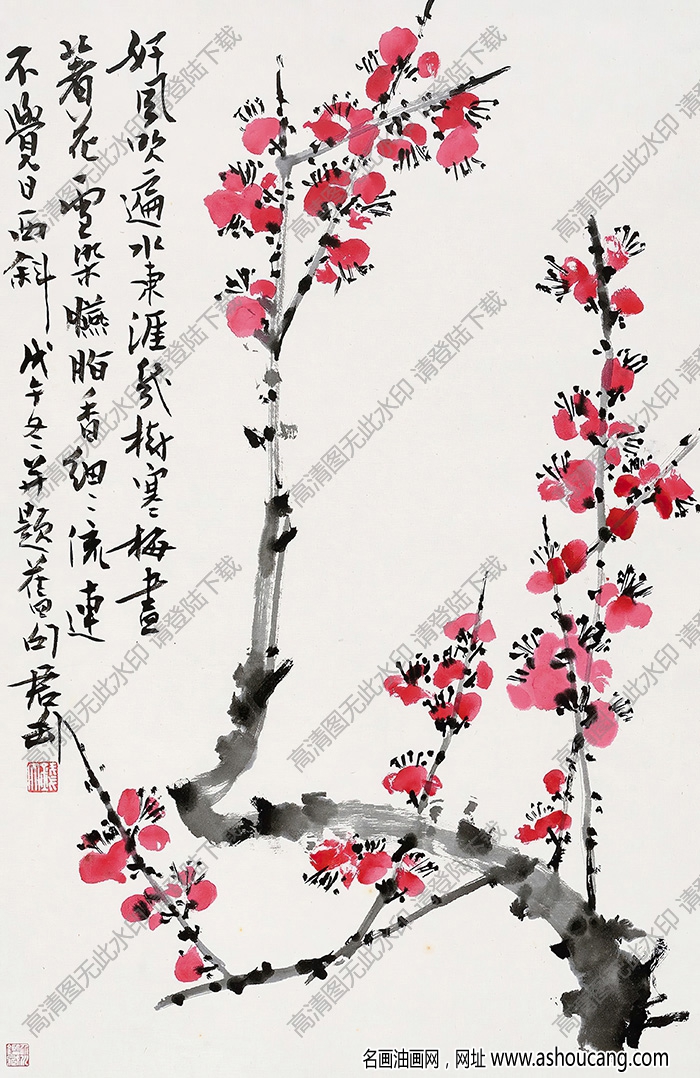 好風吹遍水東涯幾樹寒梅盡
著花雪裝臙脂香細〻流連
不覺日西斜 戊午冬并題舊句君剑
高清图无此水印 请登陆下载
名画油画网，网址 www.ashoucang.com